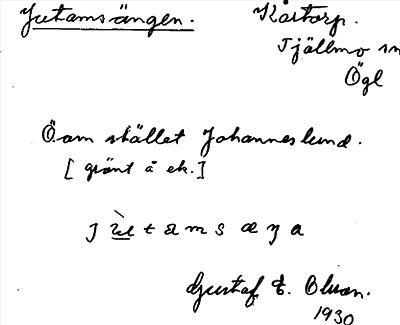 Jutamsängen. Kårtorp.
Tjällmo sn
Ögl
Ö. om stället Johanneslund.
[gränt å ek.]
Gustaf E. Olson.
1930